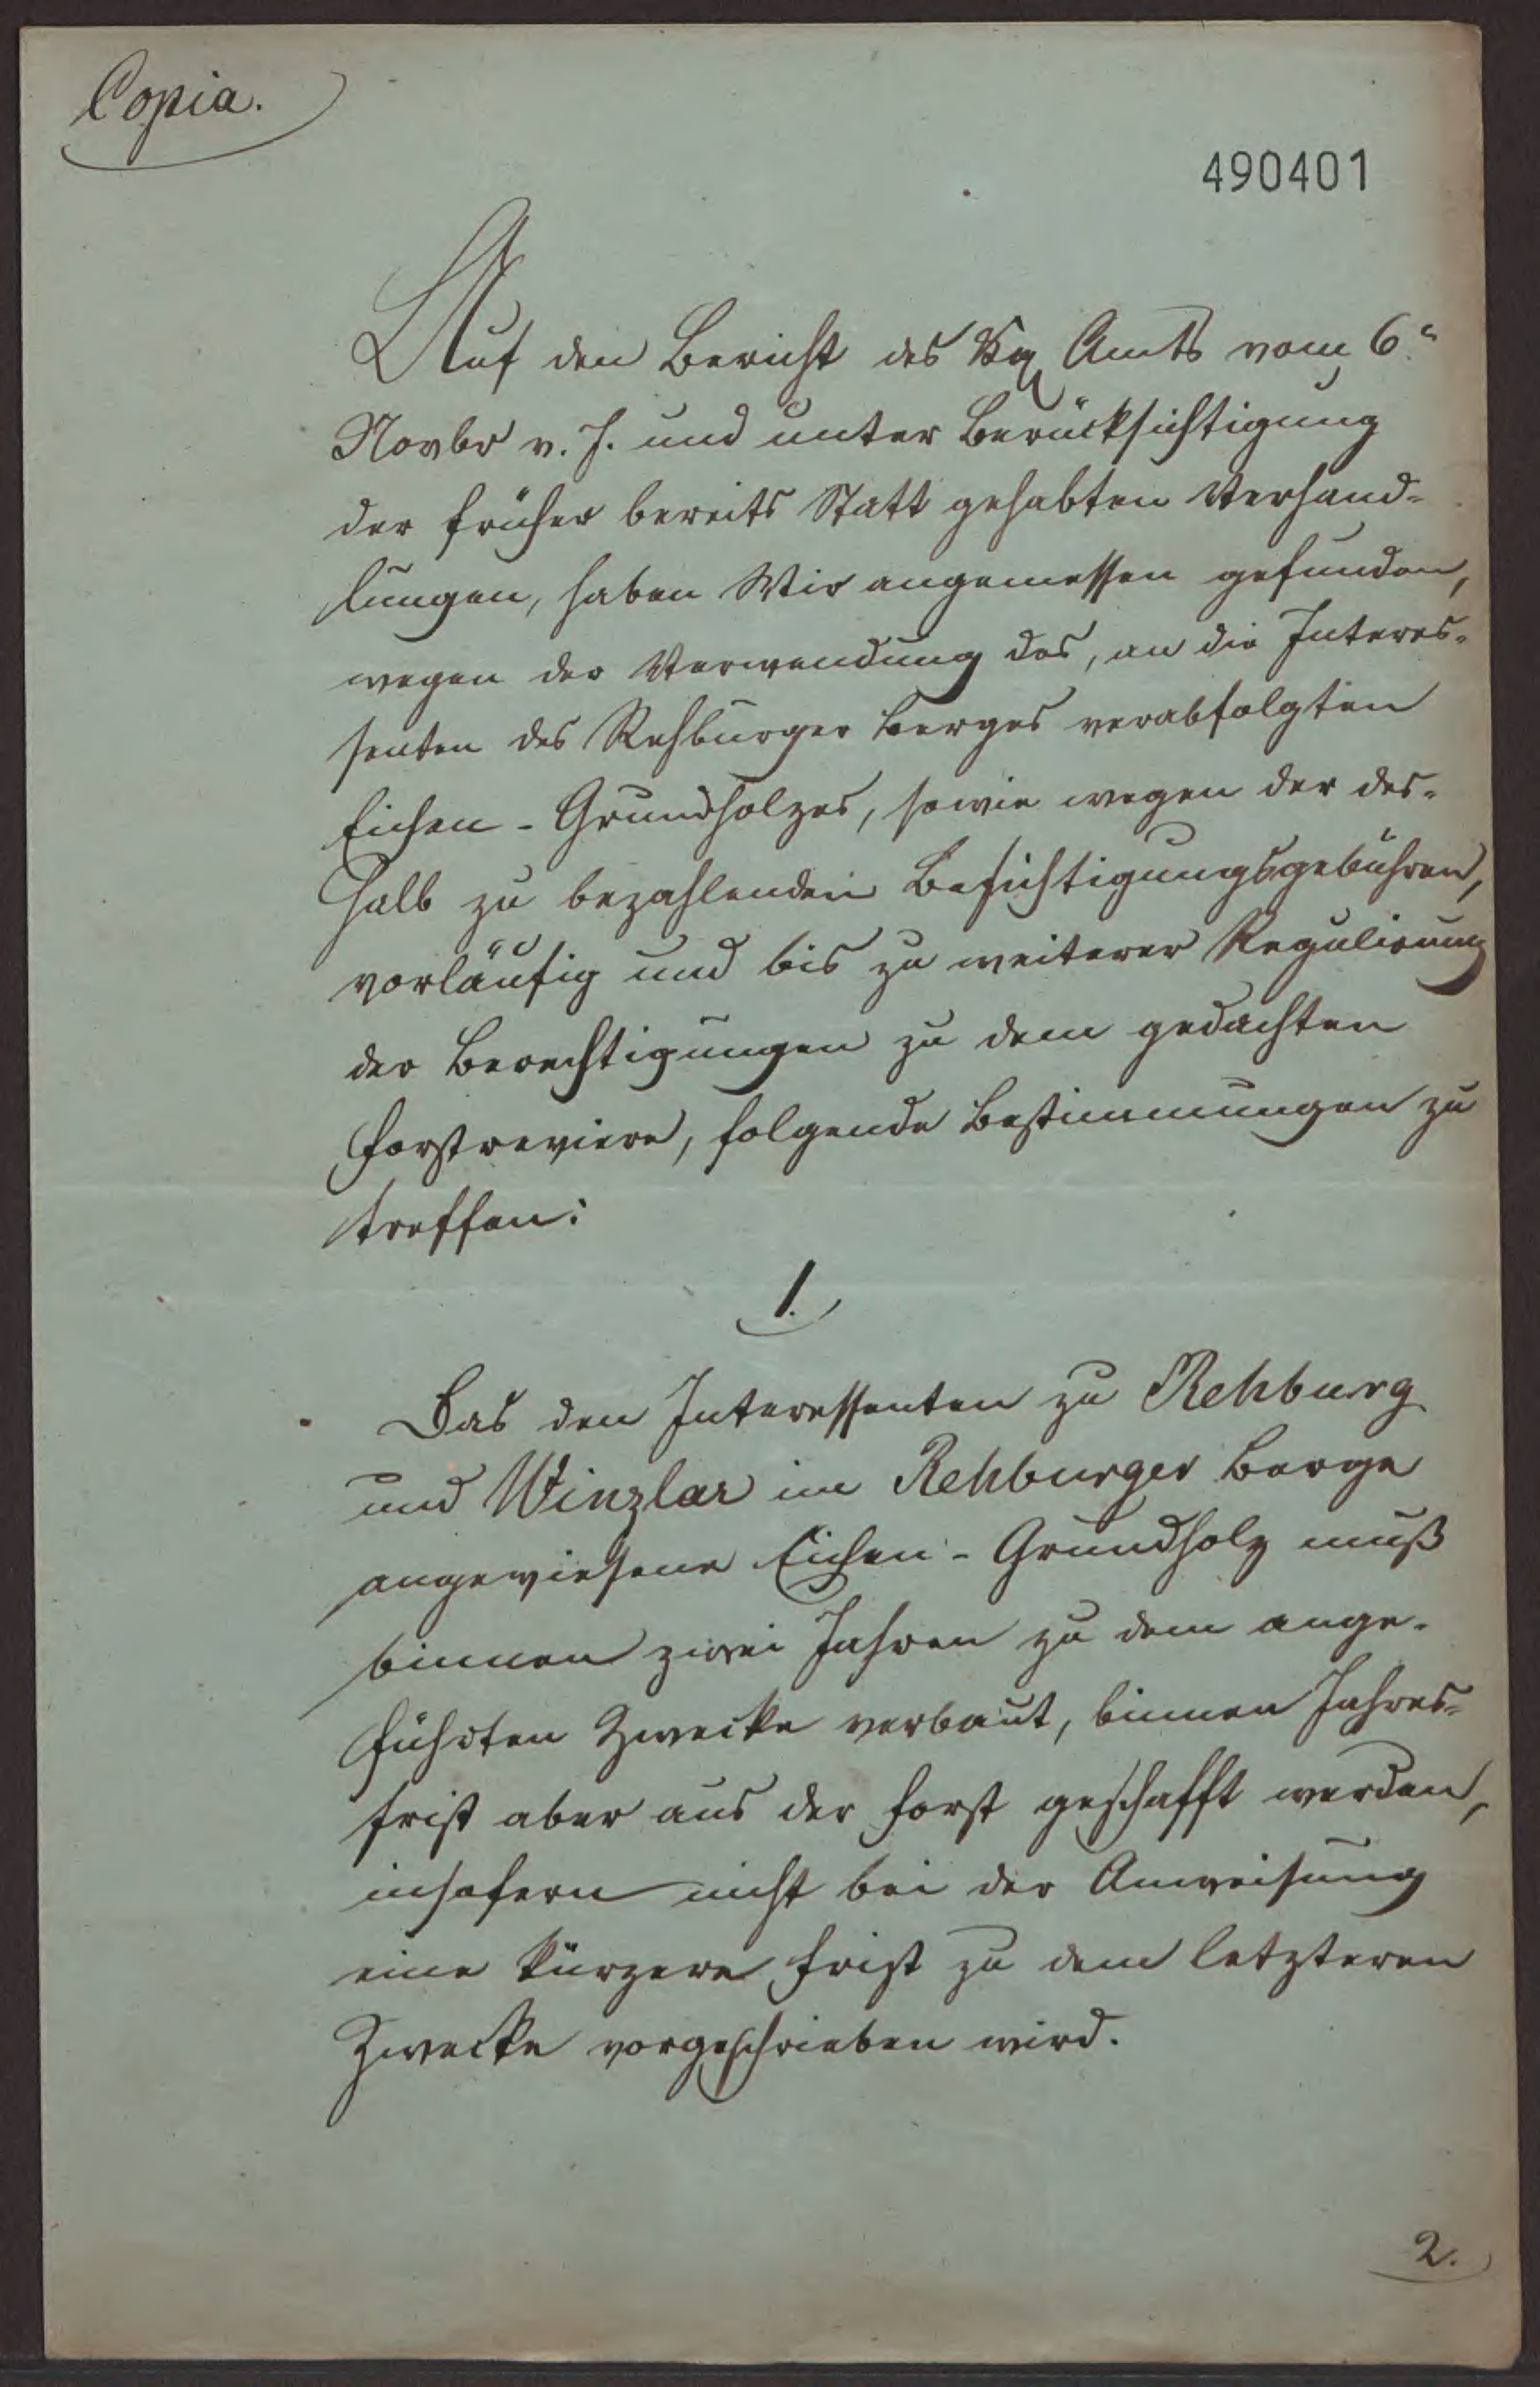 Copia.
490401
Auf den Bericht des Kg Amts vom 6n
Novbr v. J. und unter Berücksichtigung
der früher bereits Statt gehabten Verhand-
lungen, haben Wir angemessen gefunden,
wegen der Verwendung des, an die Interes-
senten des Rehburger Berges verabfolgten
Eichen-Grundholzes, sowie wegen der des-
halb zu bezahlenden Besichtigungsgebühren,
vorläufig und bis zu weiterer Regulirung
der Berechtigungen zu dem gedachten
Forstreviere, folgende Bestimmungen zu
treffen:
1.
Das den Interessenten zu Rehburg
und Winzlar im Rehburger Berge
angewiesene Eichen-Grundholz muß
binnen zwei Jahren zu dem ange-
führten Zwecke verbaut, binnen Jahres-
frist aber aus der Forst geschafft werden,
insofern nicht bei der Anweisung
eine kürzere Frist zu dem letzteren
Zwecke vorgeschrieben wird.
2.